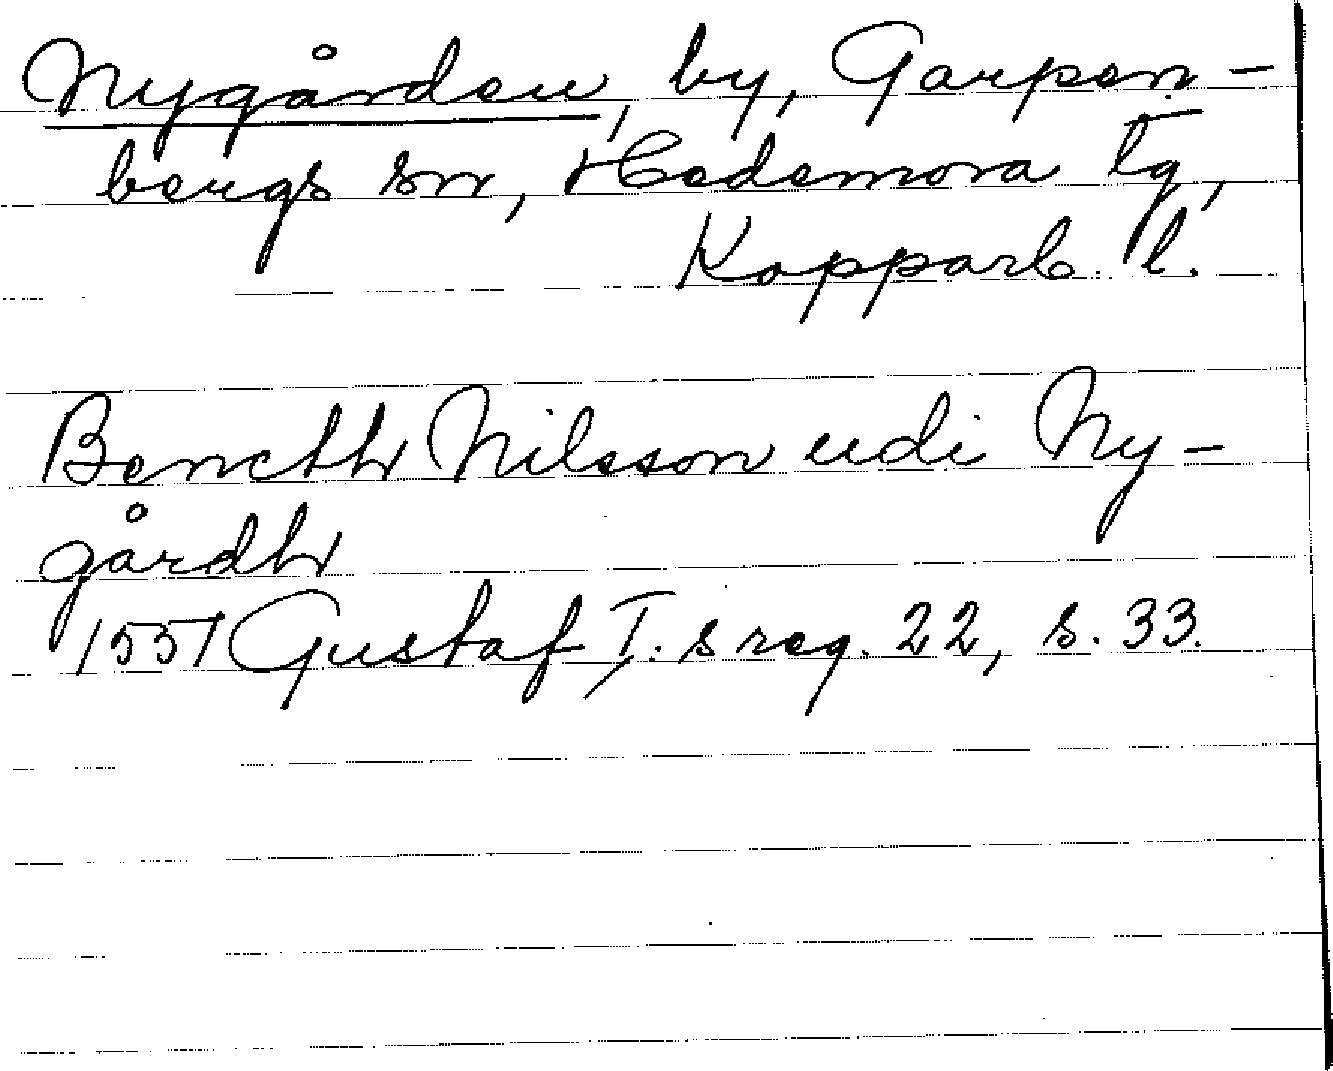 Nygården, by, Garpen-
bergs sn, Hedemora tg,
Kopparb. l.
Bencth Nilsson udi Ny-
gårdh
1557 Gustaf I. s reg. 22, s. 33.